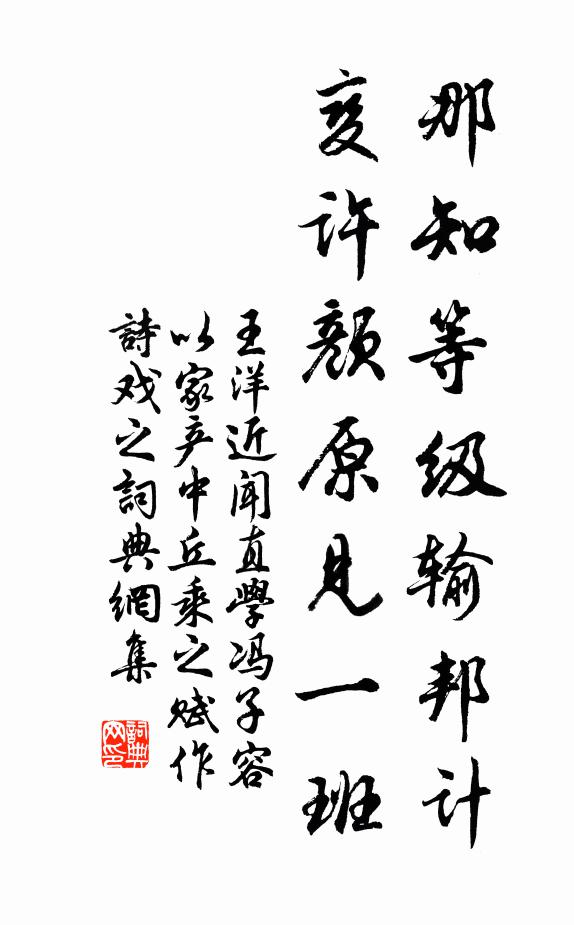 那知等级输邦计
变许颜原见一班
王洋近闻直學冯子容
以家产中丘乘之赋作
詩戏之詞典網集
詞典网印